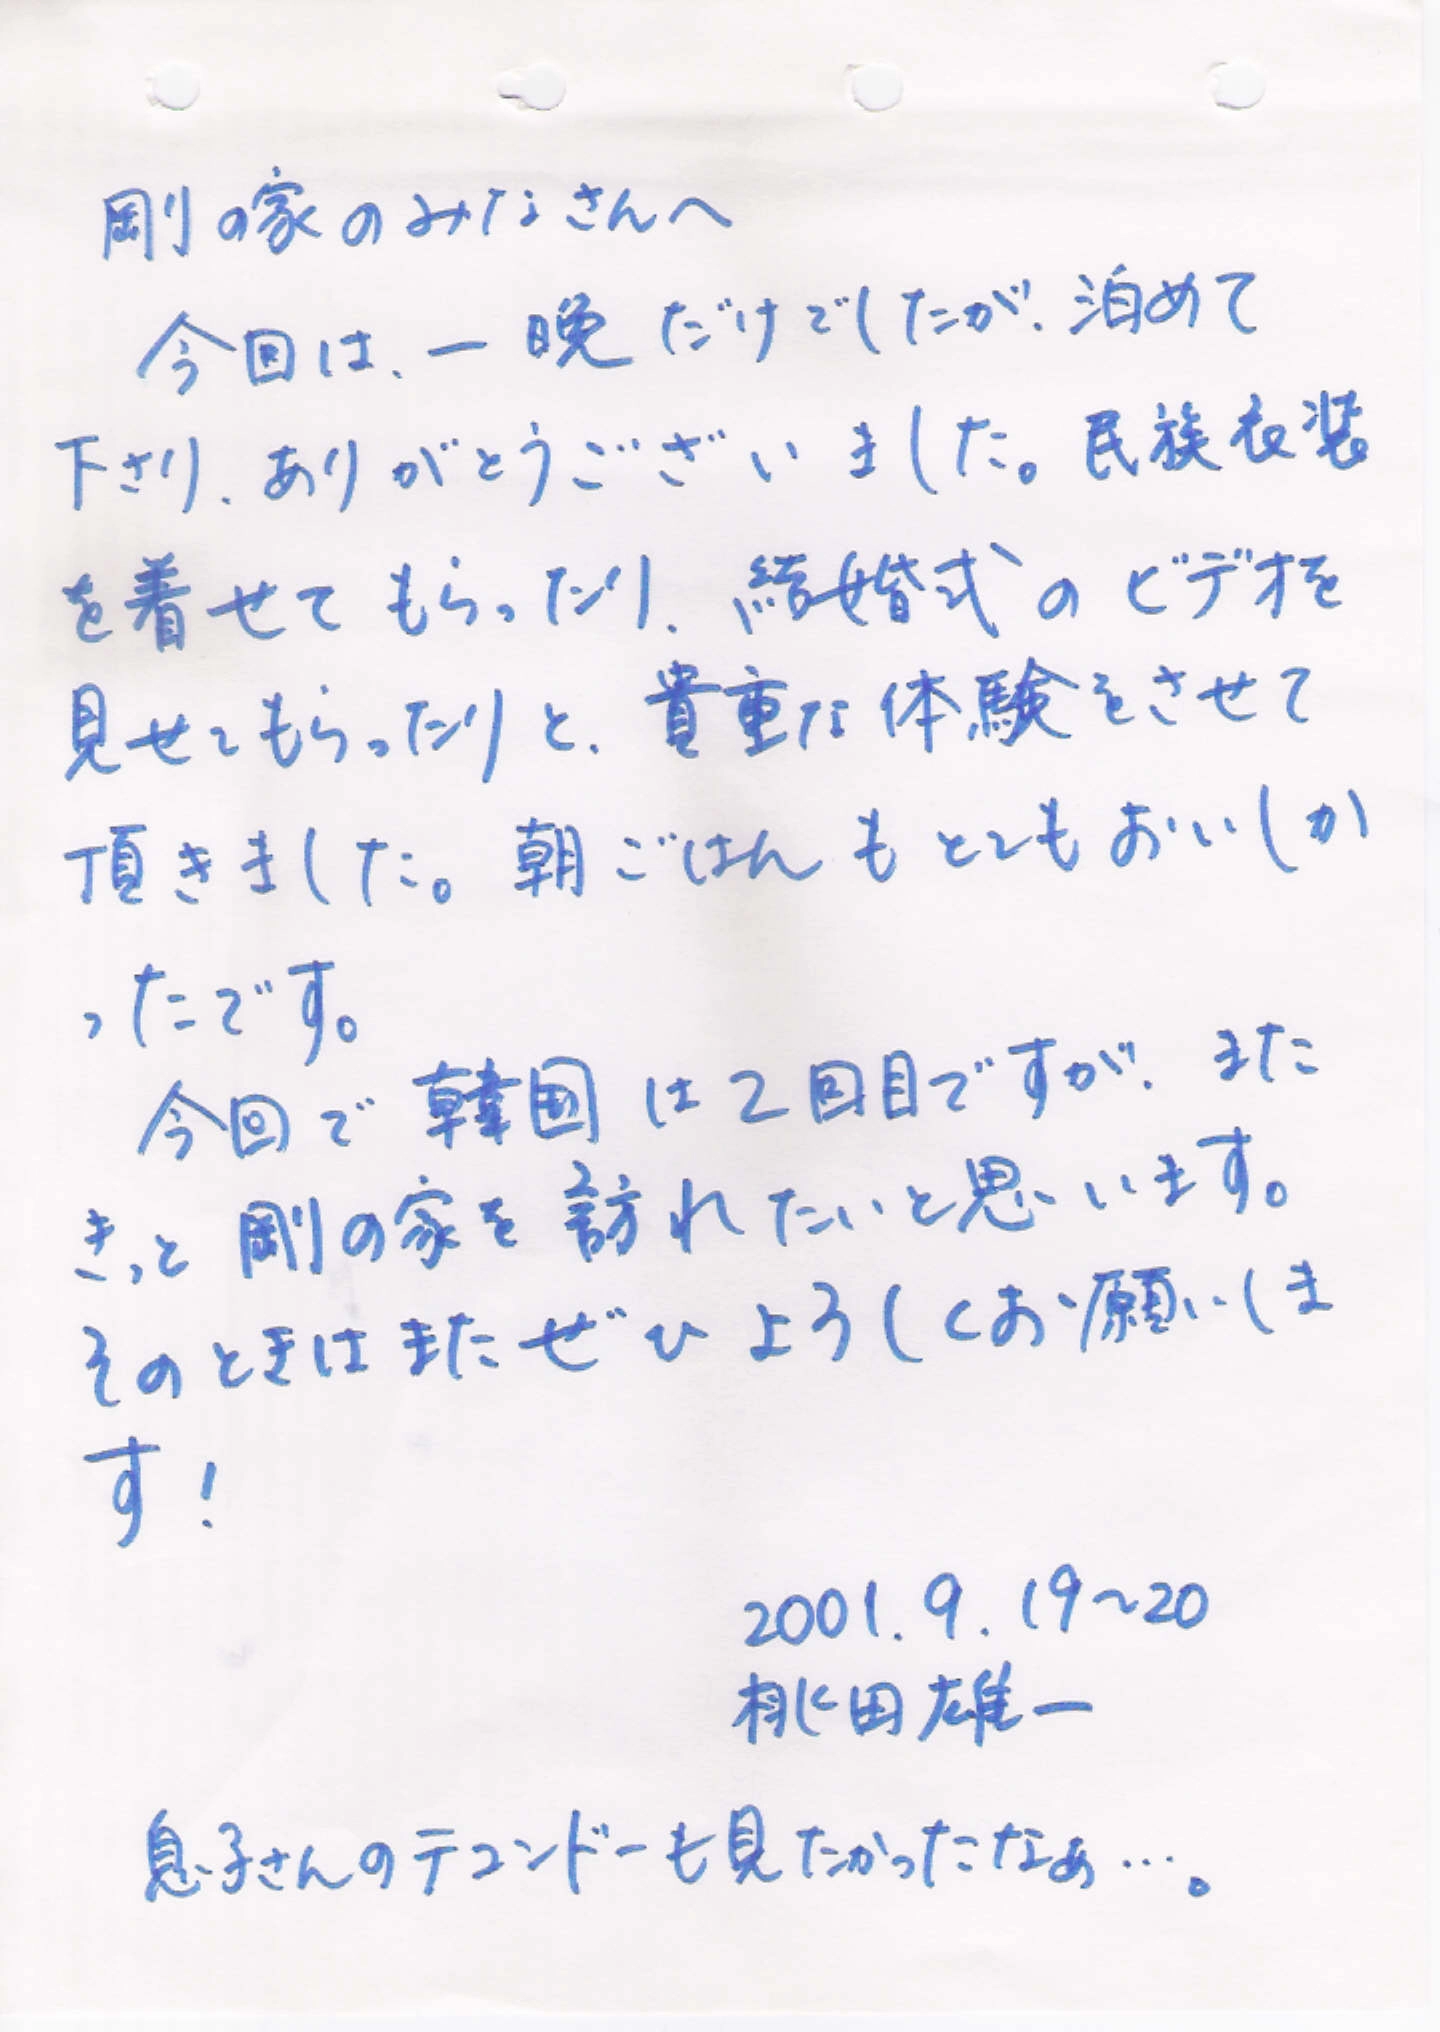 剛の家のみなさんへ
今回は、一晩だけでしたが、泊めて
下さり、ありがとうございました。民族衣装
を着せてもらったり、結婚式のビデオを
見せてもらったりと、貴重な体験をさせて
頂きました。朝ごはんもとてもおいしか
ったです。
今回で韓国は2回目ですが、また
きっと剛の家を訪れたいと思います。
そのときはまたぜひよろしくお願いしま
す!
2001.9.19〜20
桃田雄一
息子さんのテコンドーも見たかったなぁ…。